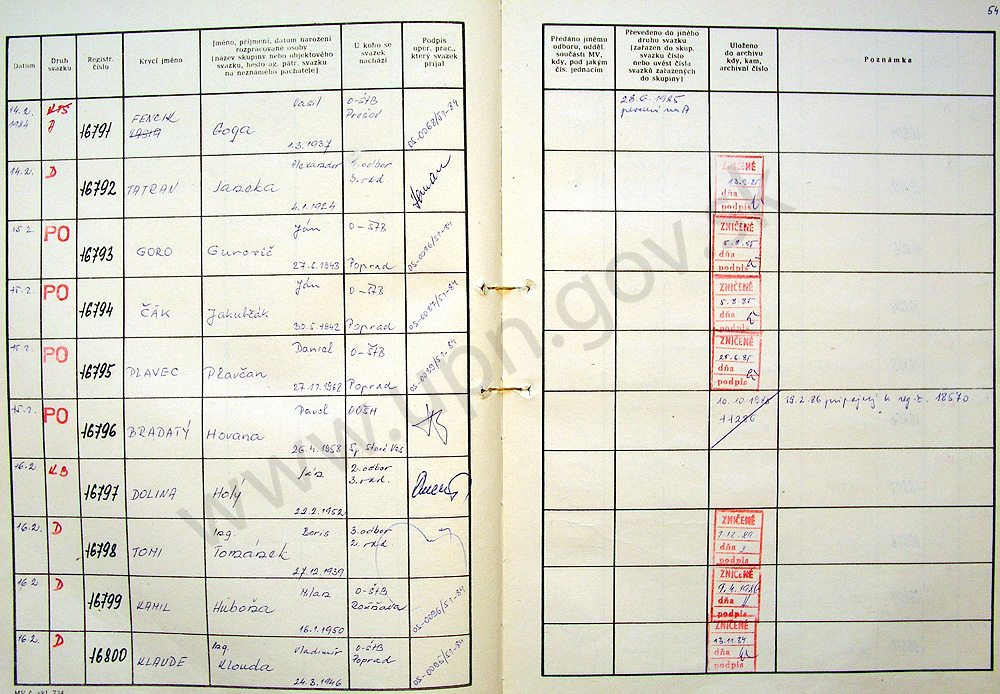 54
Datum
Druh svazku
Registr. číslo
Krycí jméno
Jméno, příjmení, datum narození
rozpracované osoby
(název skupiny nebo objektového
svazku, heslo ag. pátr. svazku
na neznámého pachatele)
U koho se
svazek
nachází
Podpis
oper. prac.,
který svazek
přijal
Předáno jinému
odboru, odděl.
součásti MV,
kdy, pod jakým
čís. jednacím
Převedeno do jiného
druhu svazku
(zařazen do skup.
svazku číslo
nebo uvést čísla
svazků zařazených
do skupiny)
Uloženo
do archivu
kdy, kam,
archivní číslo
Poznámka
14.2. 1984 KTS A 16791 FENCIK VASIĽ Vasil Goga 1.3.1937 O-ŠTB Prešov OS-0088/51-84 28.6.1985
14.2. D 16792 TATRAN Alexander 4.1.1924 1.odbor 3.rad. ZNIČENÉ 13.9.85 dňa podpis
15.2. PO 16793 GORO Ján Gurovič 27.6.1943 O-ŠTB Poprad OS-0086/51-84 ZNIČENÉ 5.8.85 dňa podpis
15.2. PO 16794 ČÁK Ján Jakubčák 30.5.1942 O-ŠTB Poprad OS-0087/51-84 ZNIČENÉ 5.8.85 dňa podpis
15.2. PO 16795 PLAVEC Daniel Plavčan 27.12.1962 O-ŠTB Poprad ZNIČENÉ 25.6.85 dňa podpis
15.2. PO 16796 BRADATÝ Pavol Hovana 26.4.1958 OOŠH Sp. Stará Ves 10.10.198 11286 19.2.86 pripojený k reg.č. 18570
16.2. KB 16797 DOLINA Ján Holý 22.2.1952 2.odbor 3.rad.
16.2. D 16798 TOMI Ing. Boris Tomášek 27.12.1939 3.odbor 2.rad ZNIČENÉ 7.12.89 dňa podpis
16.2. D 16799 KAMIL Milan Huboňa 16.1.1950 O-ŠTB Rožňava OS-0096/51-84 ZNIČENÉ 9.4.1986 dňa podpis
16.2. D 16800 KLAUDE Ing Vladimír Klouda 24.3.1946 O-ŠTB Poprad OS-0086/51-84 ZNIČENÉ 13.11.84 dňa podpis
www.upn.gov.sk